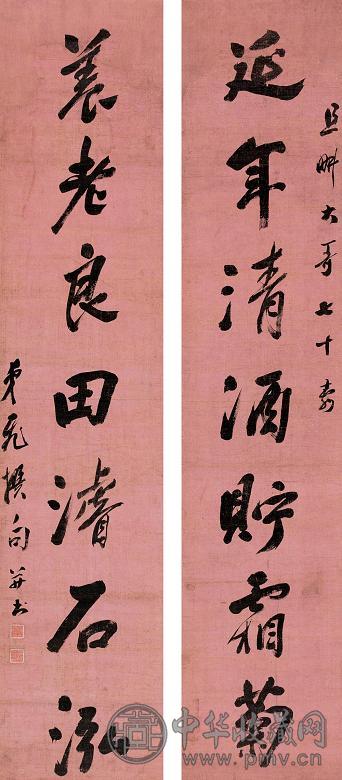 且畊大哥七十壽
延年清酒貯霜菊
養老良田濬石泓
撰句并书
中华收藏网
www.pmv.cn